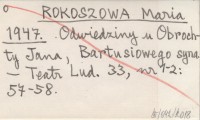 o
ROKOSZOWA Maria
1947. Odwiedziny u Obroch-
ty Jana, Bartusiowego syna
- Teatr Lud. 33, nr 1-2:
57-58.